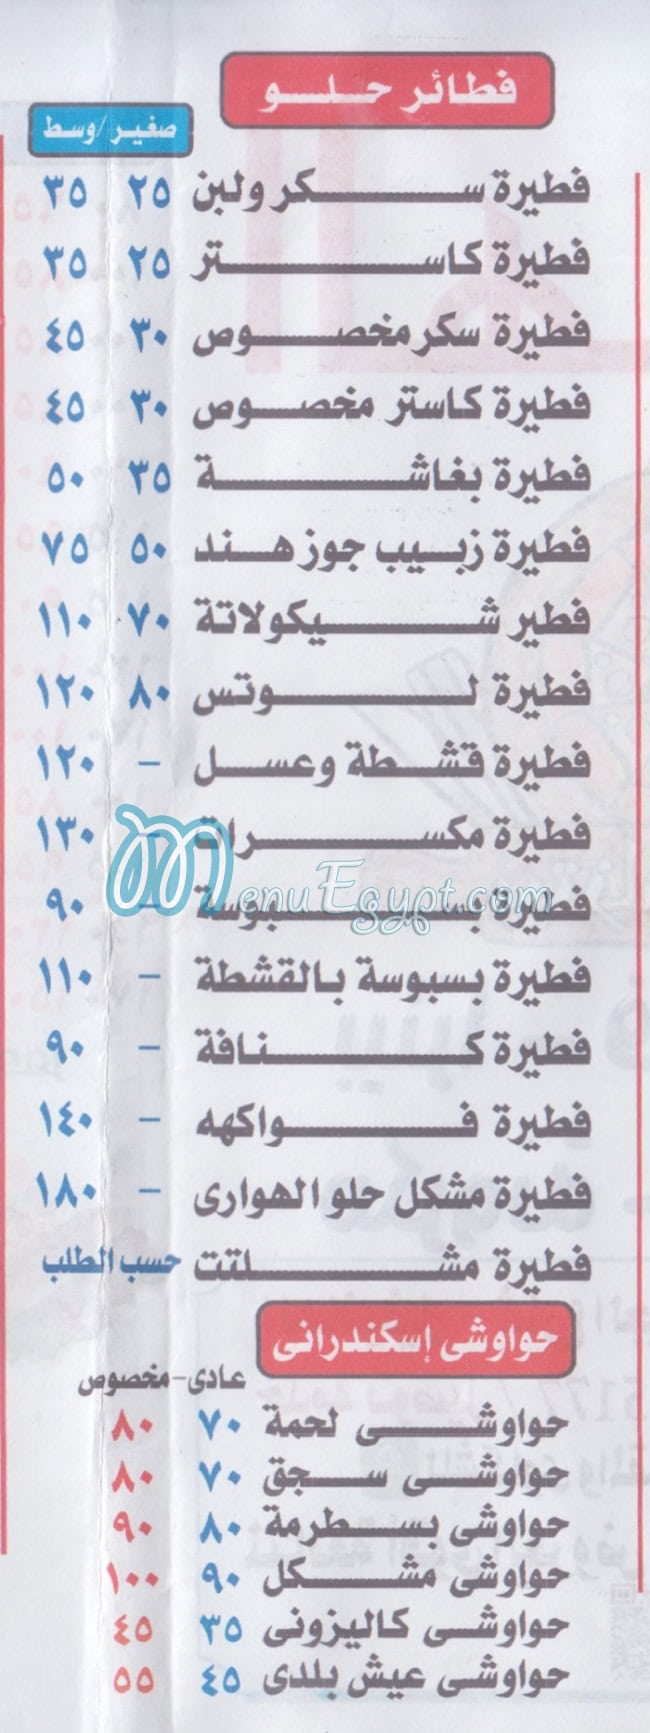 فطائر حلو
صغير/وسط
فطيرة سكر ولبن ٢٥ ٣٥
فطيرة كاستر ٢٥ ٣٥
فطيرة سكر مخصوص ٣٠ ٤٥
فطيرة كاستر مخصوص ٣٠ ٤٥
فطيرة بغاشة ٣٥ ٥٠
فطيرة زبيب جوز هند ٥٠ ٧٥
فطير شيكولاتة ٧٠ ١١٠
فطيرة لوتس ٨٠ ١٢٠
فطيرة قشطة وعسل - ١٢٠
فطيرة مكسرات - ١٣٠
MenuEgypt.com
فطيرة بسبوسة - ٩٠
فطيرة بسبوسة بالقشطة - ١١٠
فطيرة كنافة - ٩٠
فطيرة فواكهه - ١٤٠
فطيرة مشكل حلو الهوارى - ١٨٠
فطيرة مشلتت حسب الطلب
حواوشى إسكندرانى
عادى - مخصوص
حواوشى لحمة ٧٠ ٨٠
حواوشى سجق ٧٠ ٨٠
حواوشى بسطرمة ٨٠ ٩٠
حواوشى مشكل ٩٠ ١٠٠
حواوشى كاليزونى ٣٥ ٤٥
حواوشى عيش بلدى ٤٥ ٥٥